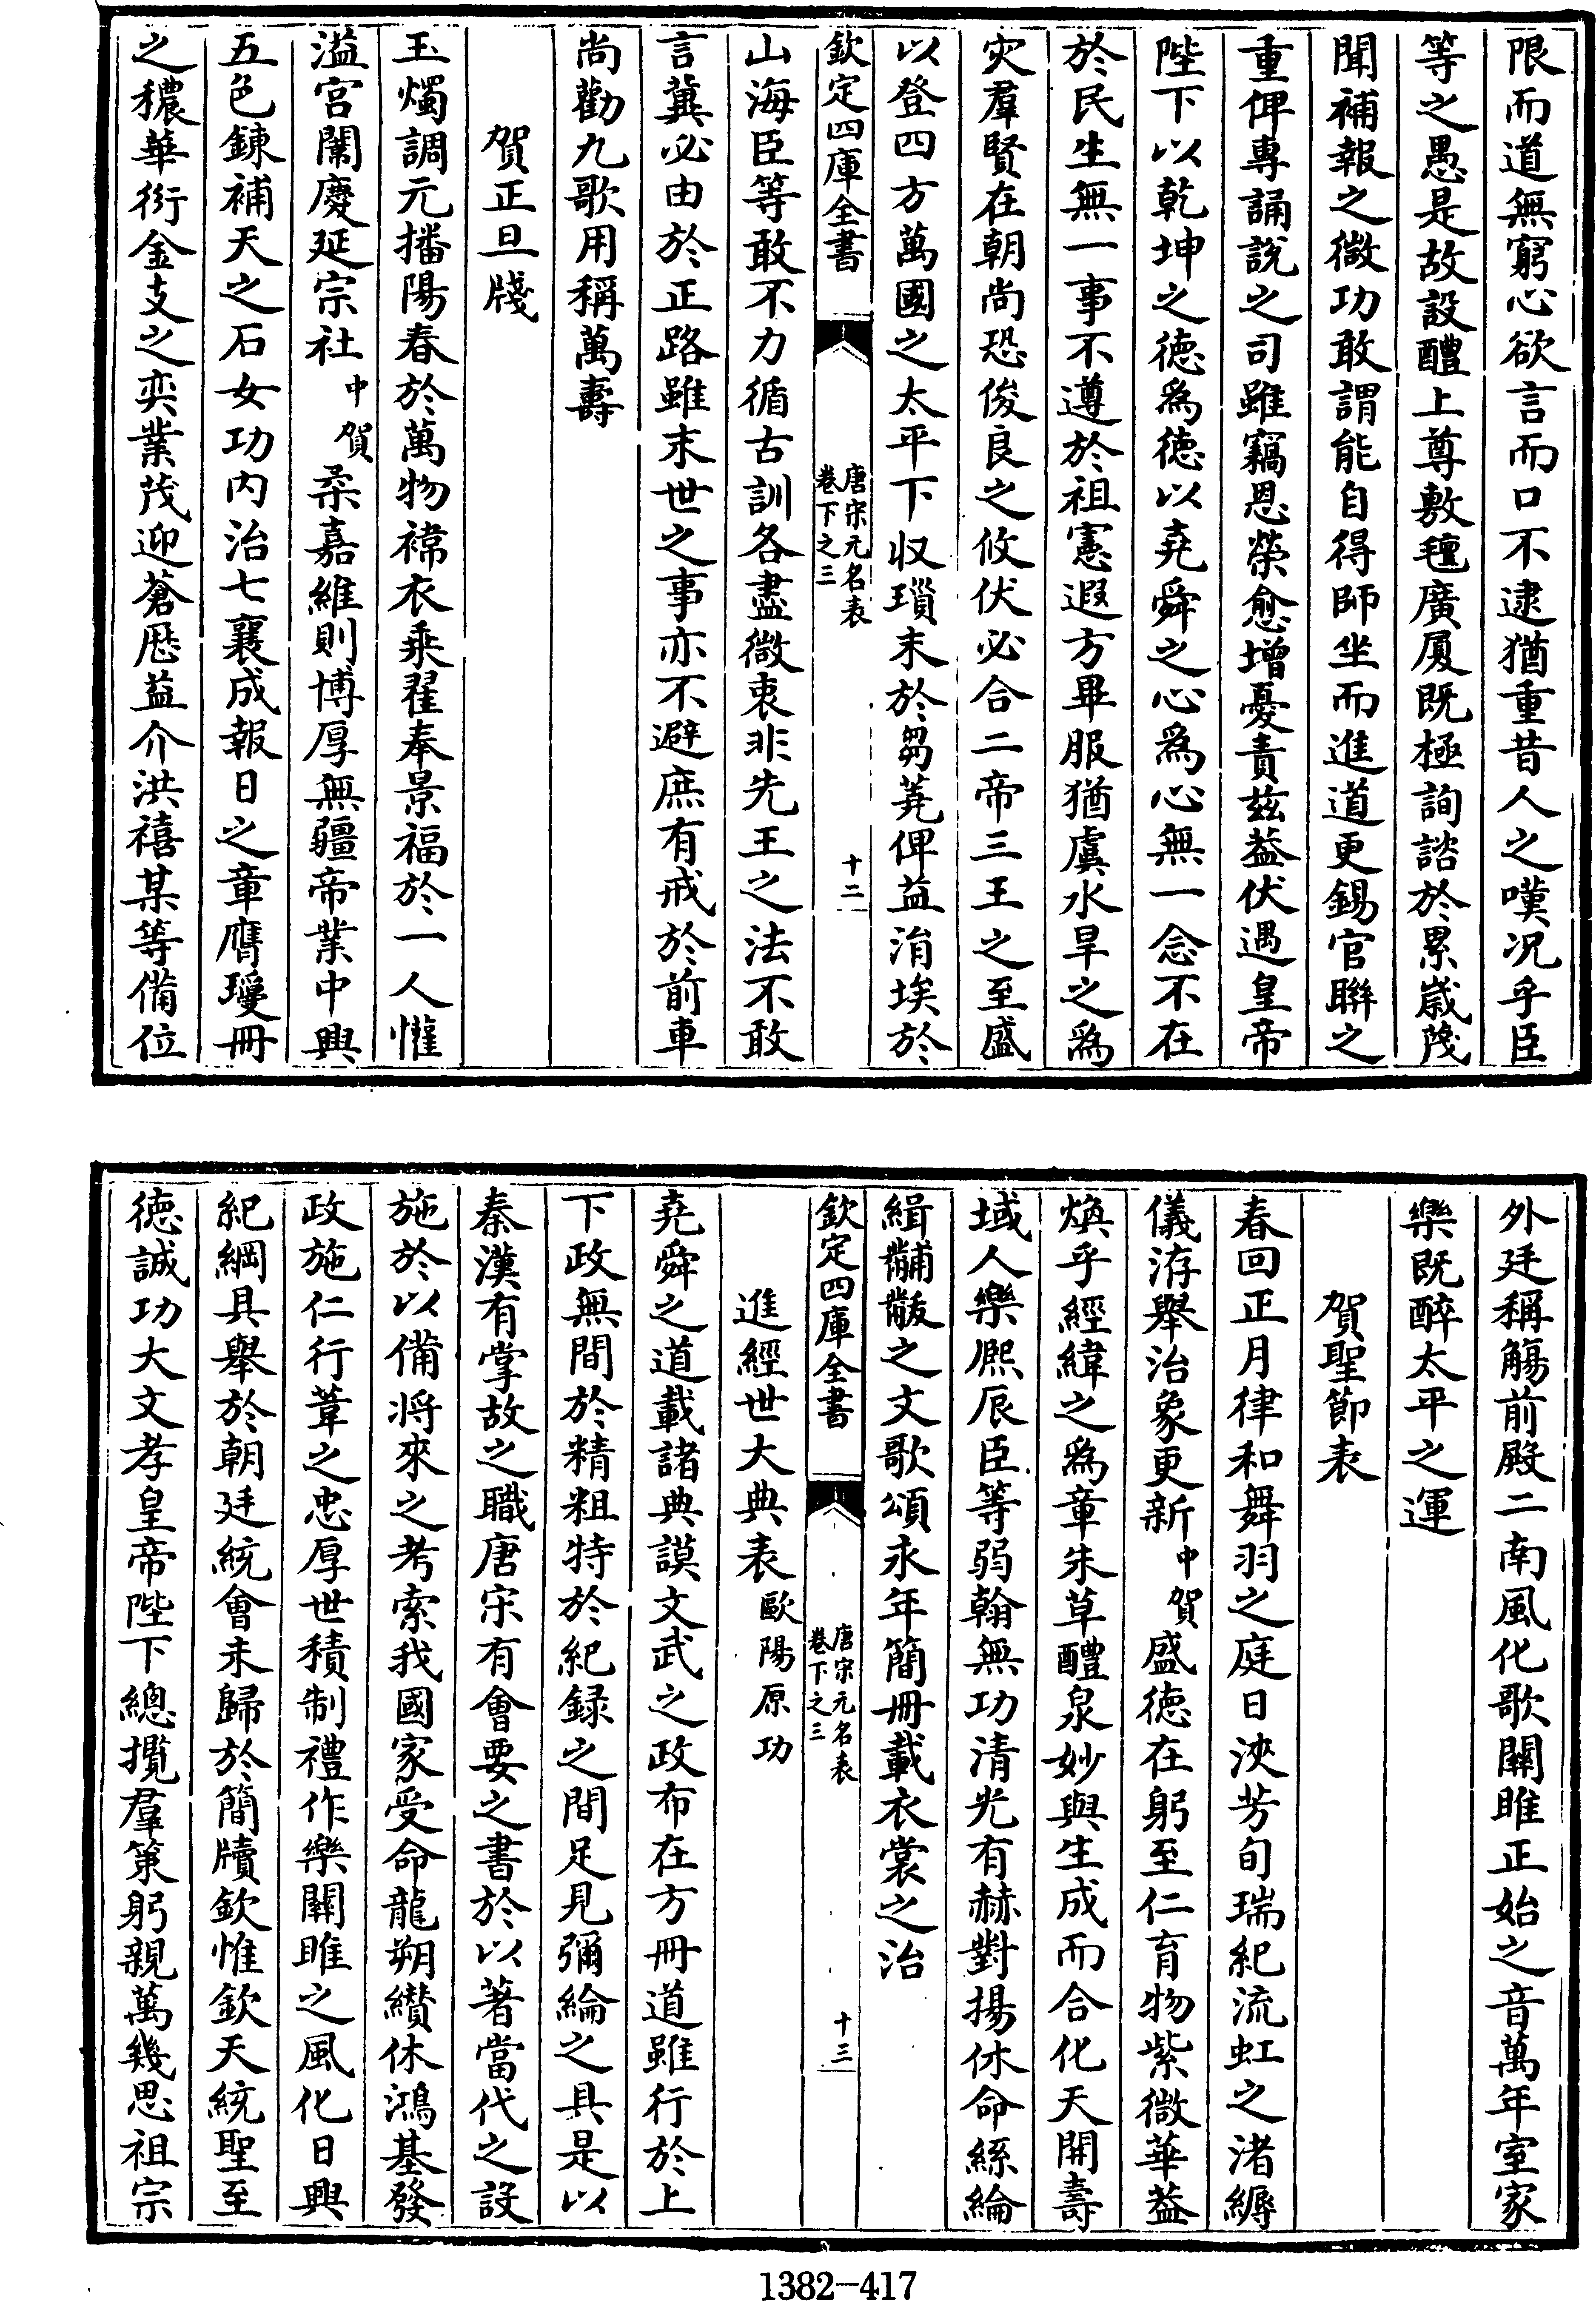 限而道無窮心欲言而口不逮猶重昔人之嘆况乎臣
等之愚是故設醴上尊敷氊廣厦既極詢諮於累歳蔑
聞補報之微功敢謂能自得師坐而進道更錫官聨之
重俾專誦説之司雖竊恩榮愈增憂責兹葢伏遇皇帝
陛下以乾坤之徳為徳以堯舜之心為心無一念不在
於民生無一事不遵於祖憲遐方畢服猶虞水旱之為
灾羣賢在朝尚恐俊良之攸伏必合二帝三王之至盛
以登四方萬國之太平下収瑣末於芻蕘俾益涓埃於
欽定四庫全書
唐宋元名表
卷下之三
十二
山海臣等敢不力循古訓各盡微衷非先王之法不敢
言冀必由於正路雖末世之事亦不避庶有戒於前車
尚勸九歌用稱萬壽
賀正旦牋
玉燭調元播陽春於萬物褘衣乗翟奉景福於一人懽
溢宫闈慶延宗社中賀柔嘉維則博厚無疆帝業中興
五色鍊補天之石女功内治七襄成報日之章膺瓊冊
之穠華衍金支之奕業茂迎蒼厯益介洪禧某等備位
外廷稱觴前殿二南風化歌關雎正始之音萬年室家
樂既醉太平之運
賀聖節表
春回正月律和舞羽之庭日浹芳旬瑞紀流虹之渚縟
儀洊舉治象更新中賀盛徳在躬至仁育物紫微華葢
煥乎經緯之為章朱草醴泉妙與生成而合化天開壽
域人樂熈辰臣等弱翰無功清光有赫對揚休命絲綸
緝黼黻之文歌頌永年簡冊載衣裳之治
欽定四庫全書
唐宋元名表
卷下之三
十三
進經世大典表歐陽原功
堯舜之道載諸典謨文武之政布在方冊道雖行於上
下政無間於精粗特於紀録之間足見彌綸之具是以
秦漢有掌故之職唐宋有會要之書於以著當代之設
施於以備将來之考索我國家受命龍朔纘休鴻基發
政施仁行葦之忠厚世積制禮作樂關雎之風化日興
紀綱具舉於朝廷統會未歸於簡牘欽惟欽天統聖至
徳誠功大文孝皇帝陛下總攬羣策躬親萬幾思祖宗
1382-417